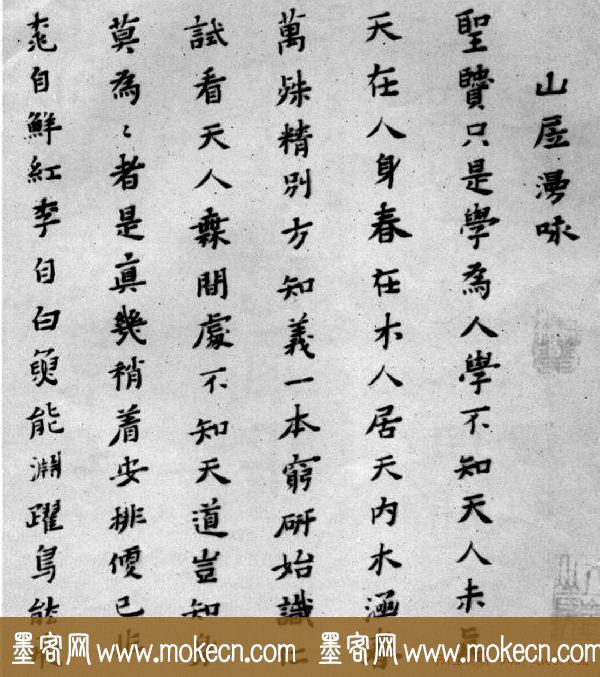 山居漫咏
聖賢只是學為人學不知天人未真
天在人身春在木人居天内木涵春
萬殊精別方知義一本窮研始識仁
試看天人無間處不知天道豈知身
莫為〻者是真幾稍着安排便已非
桃自鮮紅李自白魚能淵躍鳥能飛
墨客网 www.mokecn.com 墨客网 www.mokecn.com